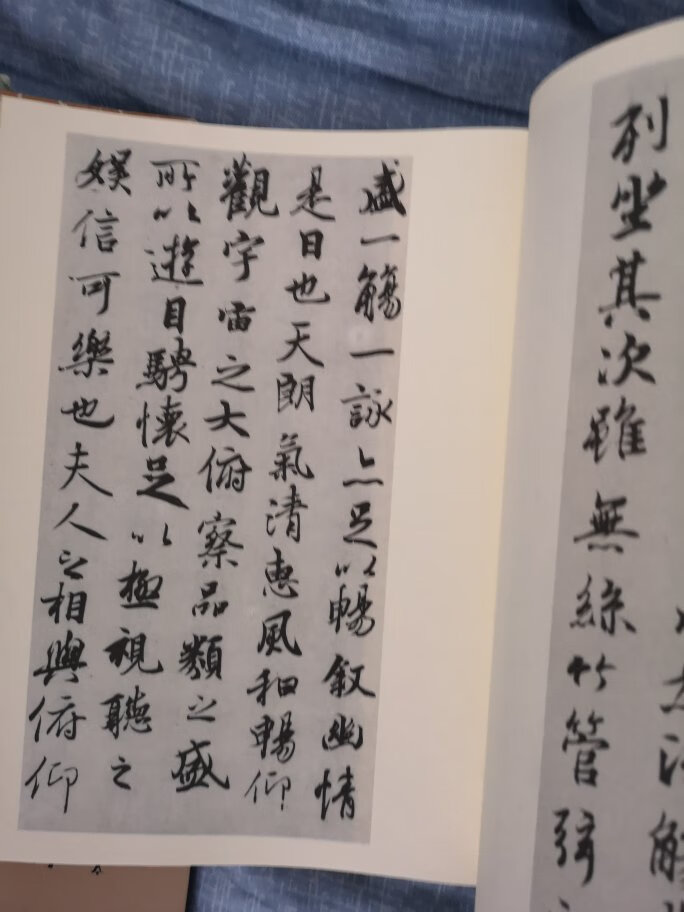 列坐其次雖無絲竹管弦
盛一觴一詠亦足以暢叙幽情
是日也天朗氣清惠風和暢仰
觀宇宙之大俯察品類之盛
所以遊目騁懷足以極視聽之
娱信可樂也夫人之相與俯仰